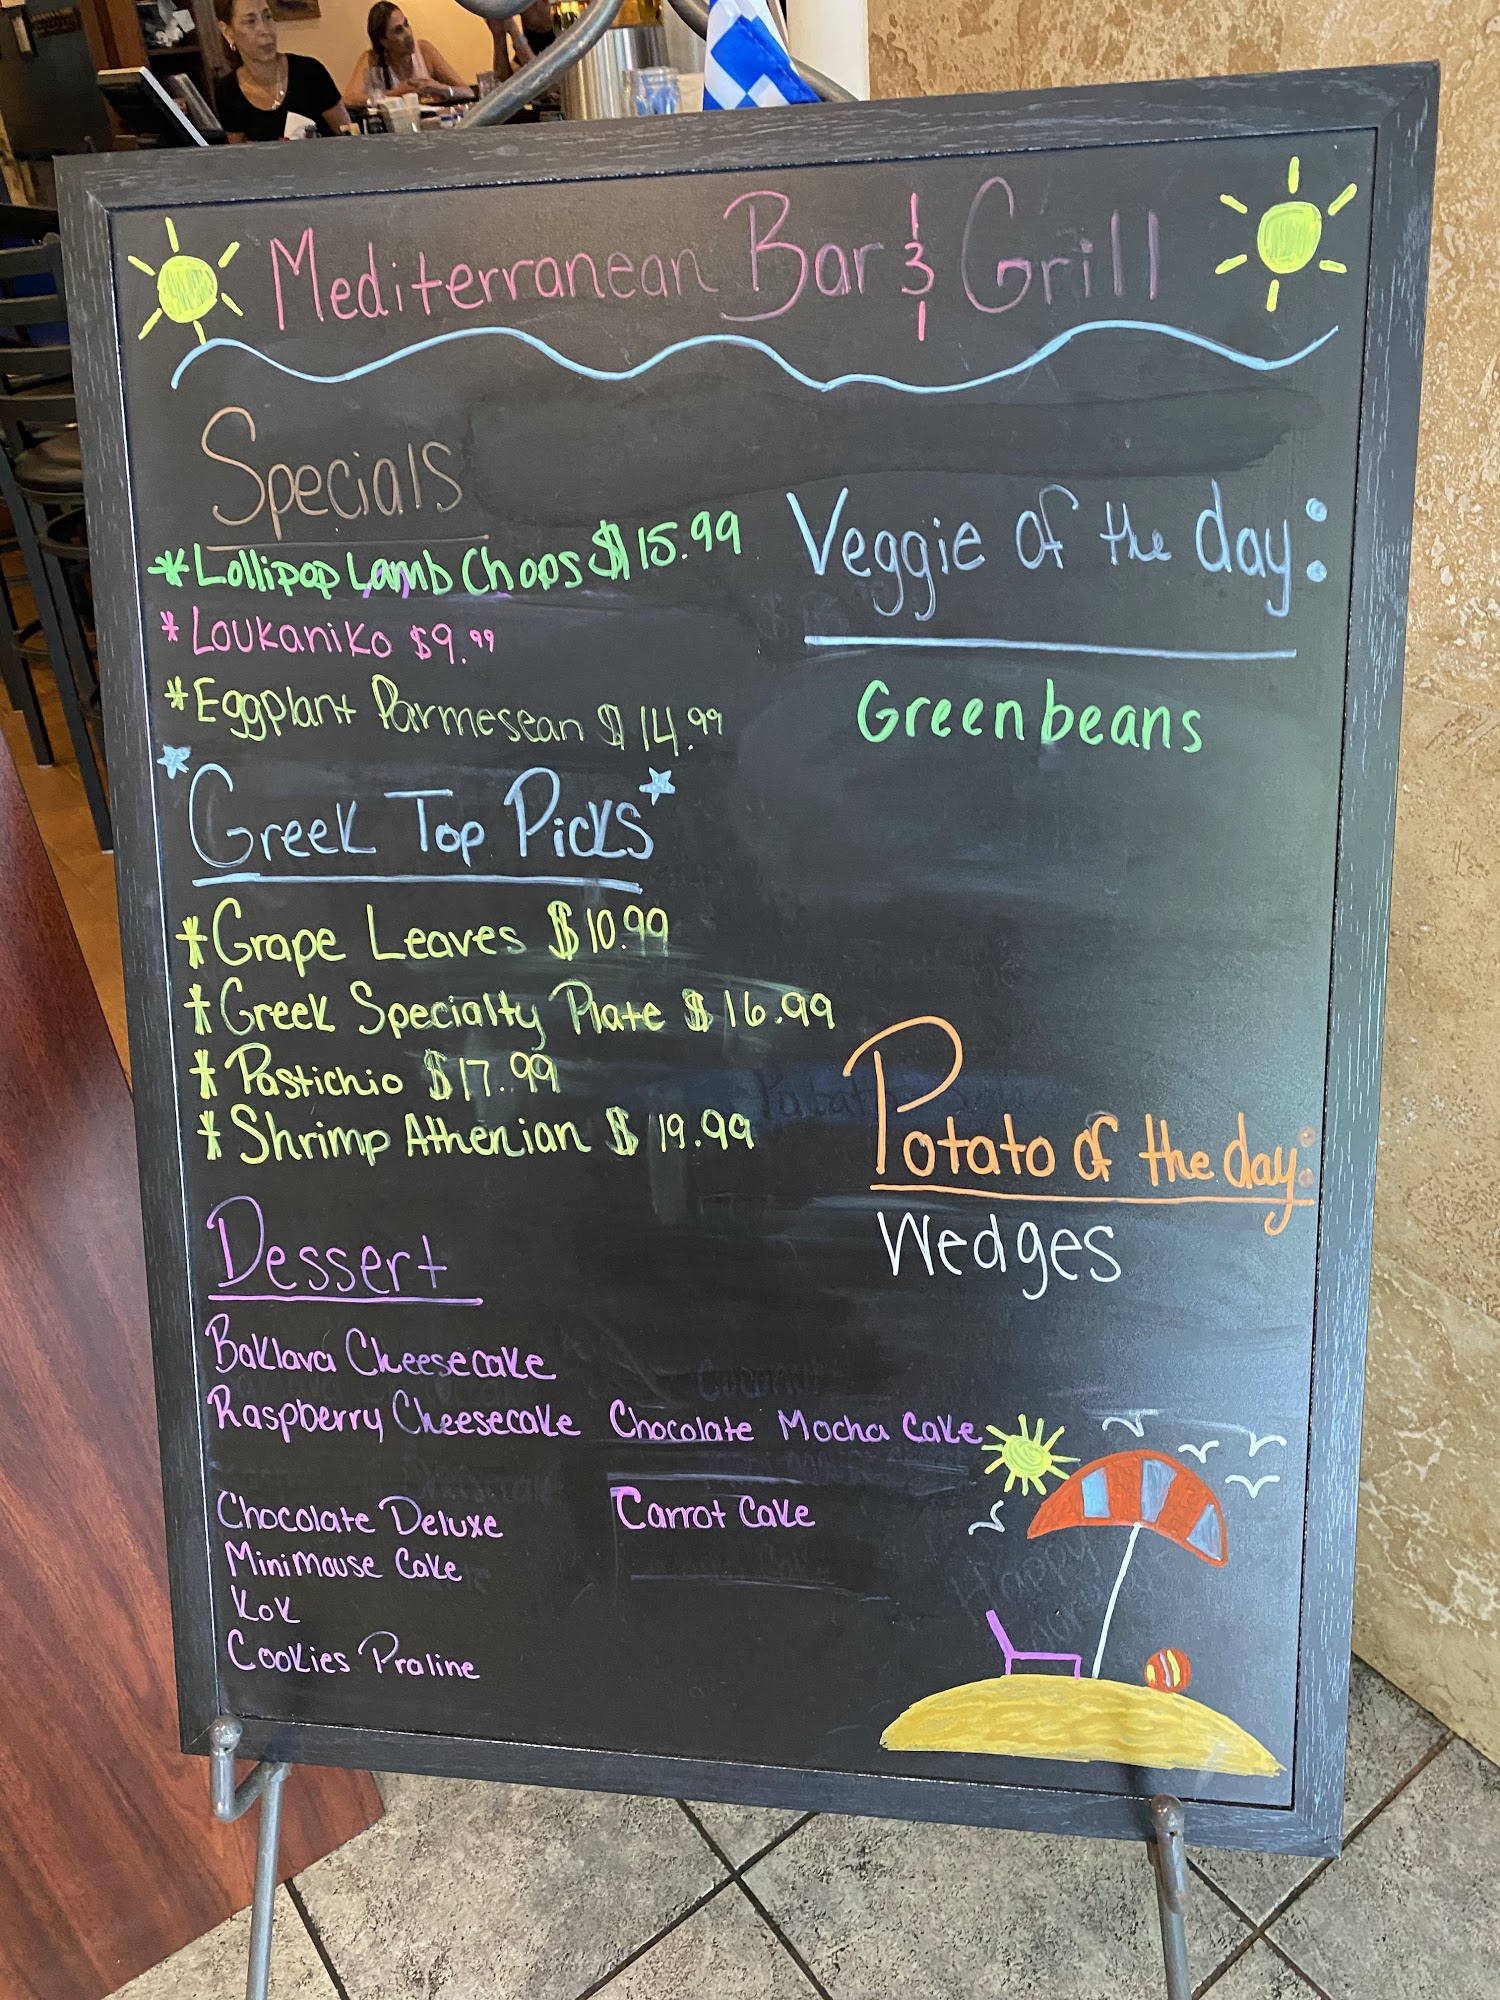 Mediterranean Bar & Grill
Specials
*Lollipop Lamb Chops $15.99
*Loukaniko $9.99
*Eggplant Parmesean $14.99
Greek Top Picks
*Grape Leaves $10.99
*Greek Specialty Plate $16.99
*Pastichio $17.99
*Shrimp Athenian $19.99
Dessert
Baklava Cheesecake
Raspberry Cheesecake
Chocolate Deluxe
Minimouse Cake
KoK
Cookies Praline
Chocolate Mocha Cake
Carrot Cake
Veggie of the day:
Green beans
Potato of the day:
Wedges
Happy